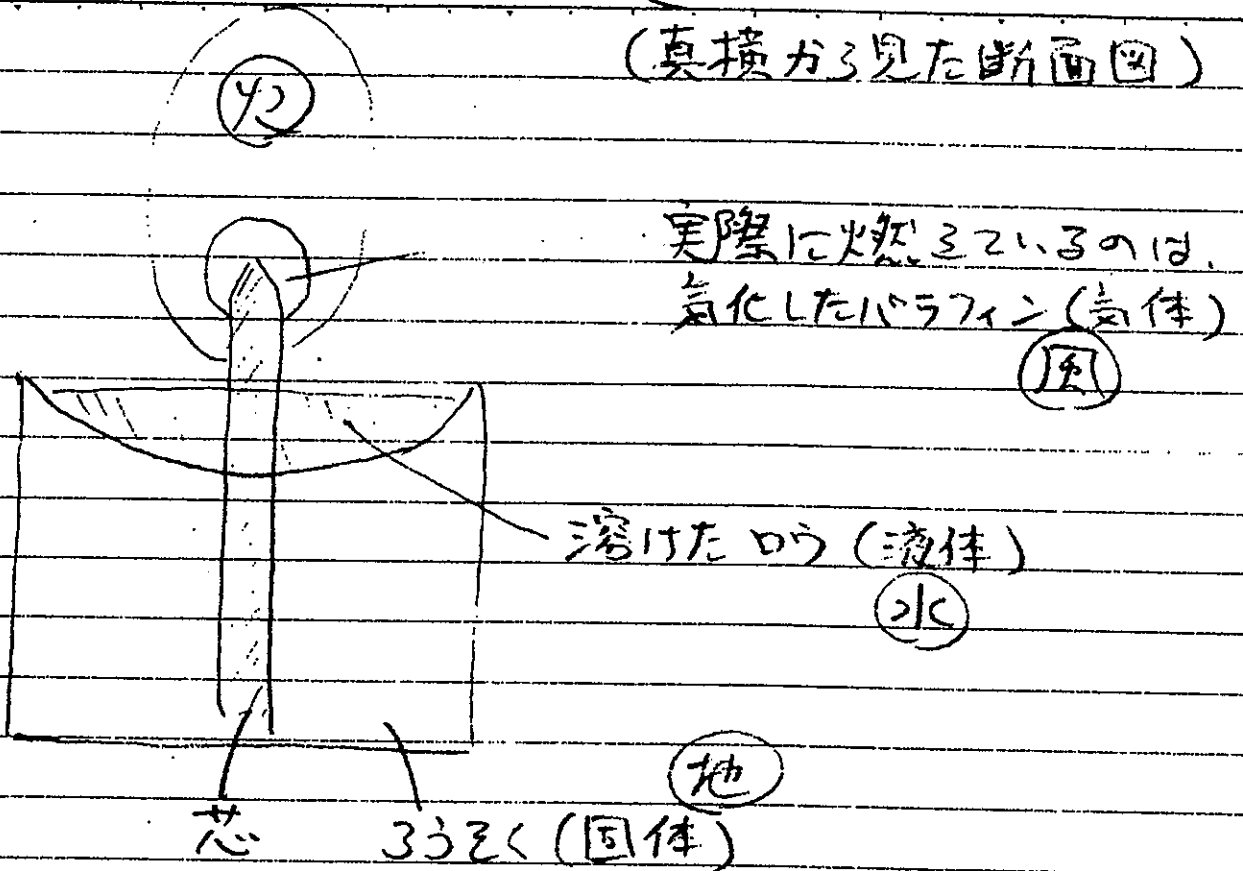 (真横から見た断面図)
火
実際に燃えているのは、
気化したパラフィン(気体)
風
溶けたロウ(液体)
水
地
芯
ろうそく(固体)